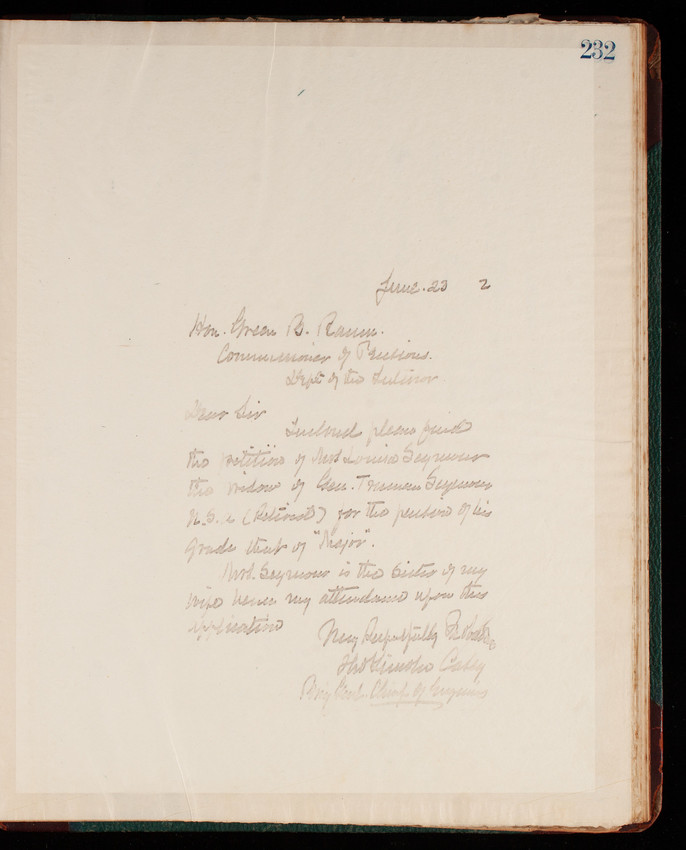 232
June. 23 2
Hon. Green B. Raum.
Commissioner of Pensions.
Dept of the Interior
Dear Sir
Inclosed please find
the petition of Mrs Louisa Seymour
the widow of Gen. Truman Seymour
U.S.A. (Retired) for the pension of his
grade that of "Major".
Mrs. Seymour is the sister of my
wife hence my attendance upon this
application
Very Respectfully
Thos Lincoln Casey
Brig Genl. Chief of Engineers